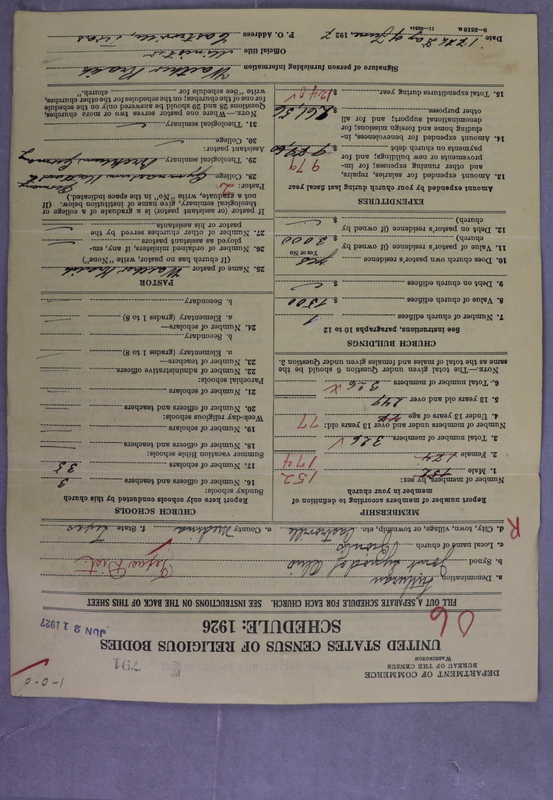 1-0-0
DEPARTMENT OF COMMERCE
BUREAU OF THE CENSUS
WASHINGTON
791
UNITED STATES CENSUS OF RELIGIOUS BODIES
SCHEDULE: 1926
JUN 21 1927
FILL OUT A SEPARATE SCHEDULE FOR EACH CHURCH. SEE INSTRUCTIONS ON THE BACK OF THIS SHEET
a. Denomination Lutheran
b. Synod Joint Synod of Ohio
Texas Dist.
c. Local name of church
d. City, town, village, or township, etc. Castroville e. County Medina f. State Texas
R
MEMBERSHIP
Report number of member according to definition of member in your church
Number of members, by sex:
1. Male 152
2. Female 174
3. Total number of members 326
Number of members under and over 13 years old:
4. Under 13 years of age 77
5. 13 years old and over 249
6. Total number of members 326
NOTE.—The total of members given under Question 6 should be the same as the total of males and females given under Question 3.
CHURCH BUILDINGS
See instruction, paragraphs 10 to 12
7. Number of church edifices 1
8. Value of church edifices $ 7500
9. Debt on church edifices $
10. Does church own pastor's residence yes
Yes or No
11. Value of pastor's residence (if owned by church) $ 3000
12. Debt on pastor's residence (if owned by church) $
EXPENDITURES
Amount expended by your church during last fiscal year
13. Amount expended for salaries, repairs, and other running expense; for improvements or new building; and for payments on church debt 979
14. Amount expended for benevolences, including home and foreign missions; for denominational support; and for all other purposes $ 261,56
15. Total expenditures during year $ 1240
CHURCH SCHOOLS
Report here only schools conducted by this church
Sunday schools:
16. Number of officers and teachers 3
17. Number of scholars 35
Summer vacation Bible schools:
18. Number of officers and teachers
19. Number of scholars
Week-day religious schools:
20. Number of officers and teachers
21. Number of scholars
Parochial schools:
22. Number of administrative officers
23. Number of teachers—
a. Elementary (grades 1 to 8)
b. Secondary
24. Number of scholars—
a. Elementary (grades 1 to 8)
b. Secondary
PASTOR
25. Name of pastor
(If church has no pastor, write "None")
26. Number of ordained ministers, if any, employed as assistant pastors
27. Number of other churches served by the pastor or his assistants
If pastor (or assistant pastor) is a graduate of a college or theological seminary, give name of institution below. (If not a graduate, write "No" in the space indicated.)
Pastor:
28. College Germany
29. Theological seminary Germany
Assistant pastor:
30. College
31. Theological seminary
NOTE.—Where one pastor serves two or more churches, Questions 28 and 29 should be answered only on the schedule for one of the churches; on the schedule for the other churches, write "See schedule for church."
Signature of person furnishing information
Official title Minister
Date 17th day of June, 1927 P. O. Address Castroville, Texas